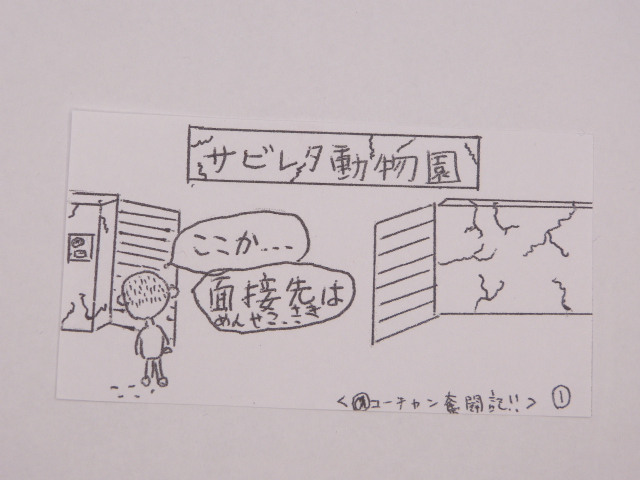 サビレタ動物園
ここか...
面接先は
めんせつさき
<コーチャン奮闘記!!> ①